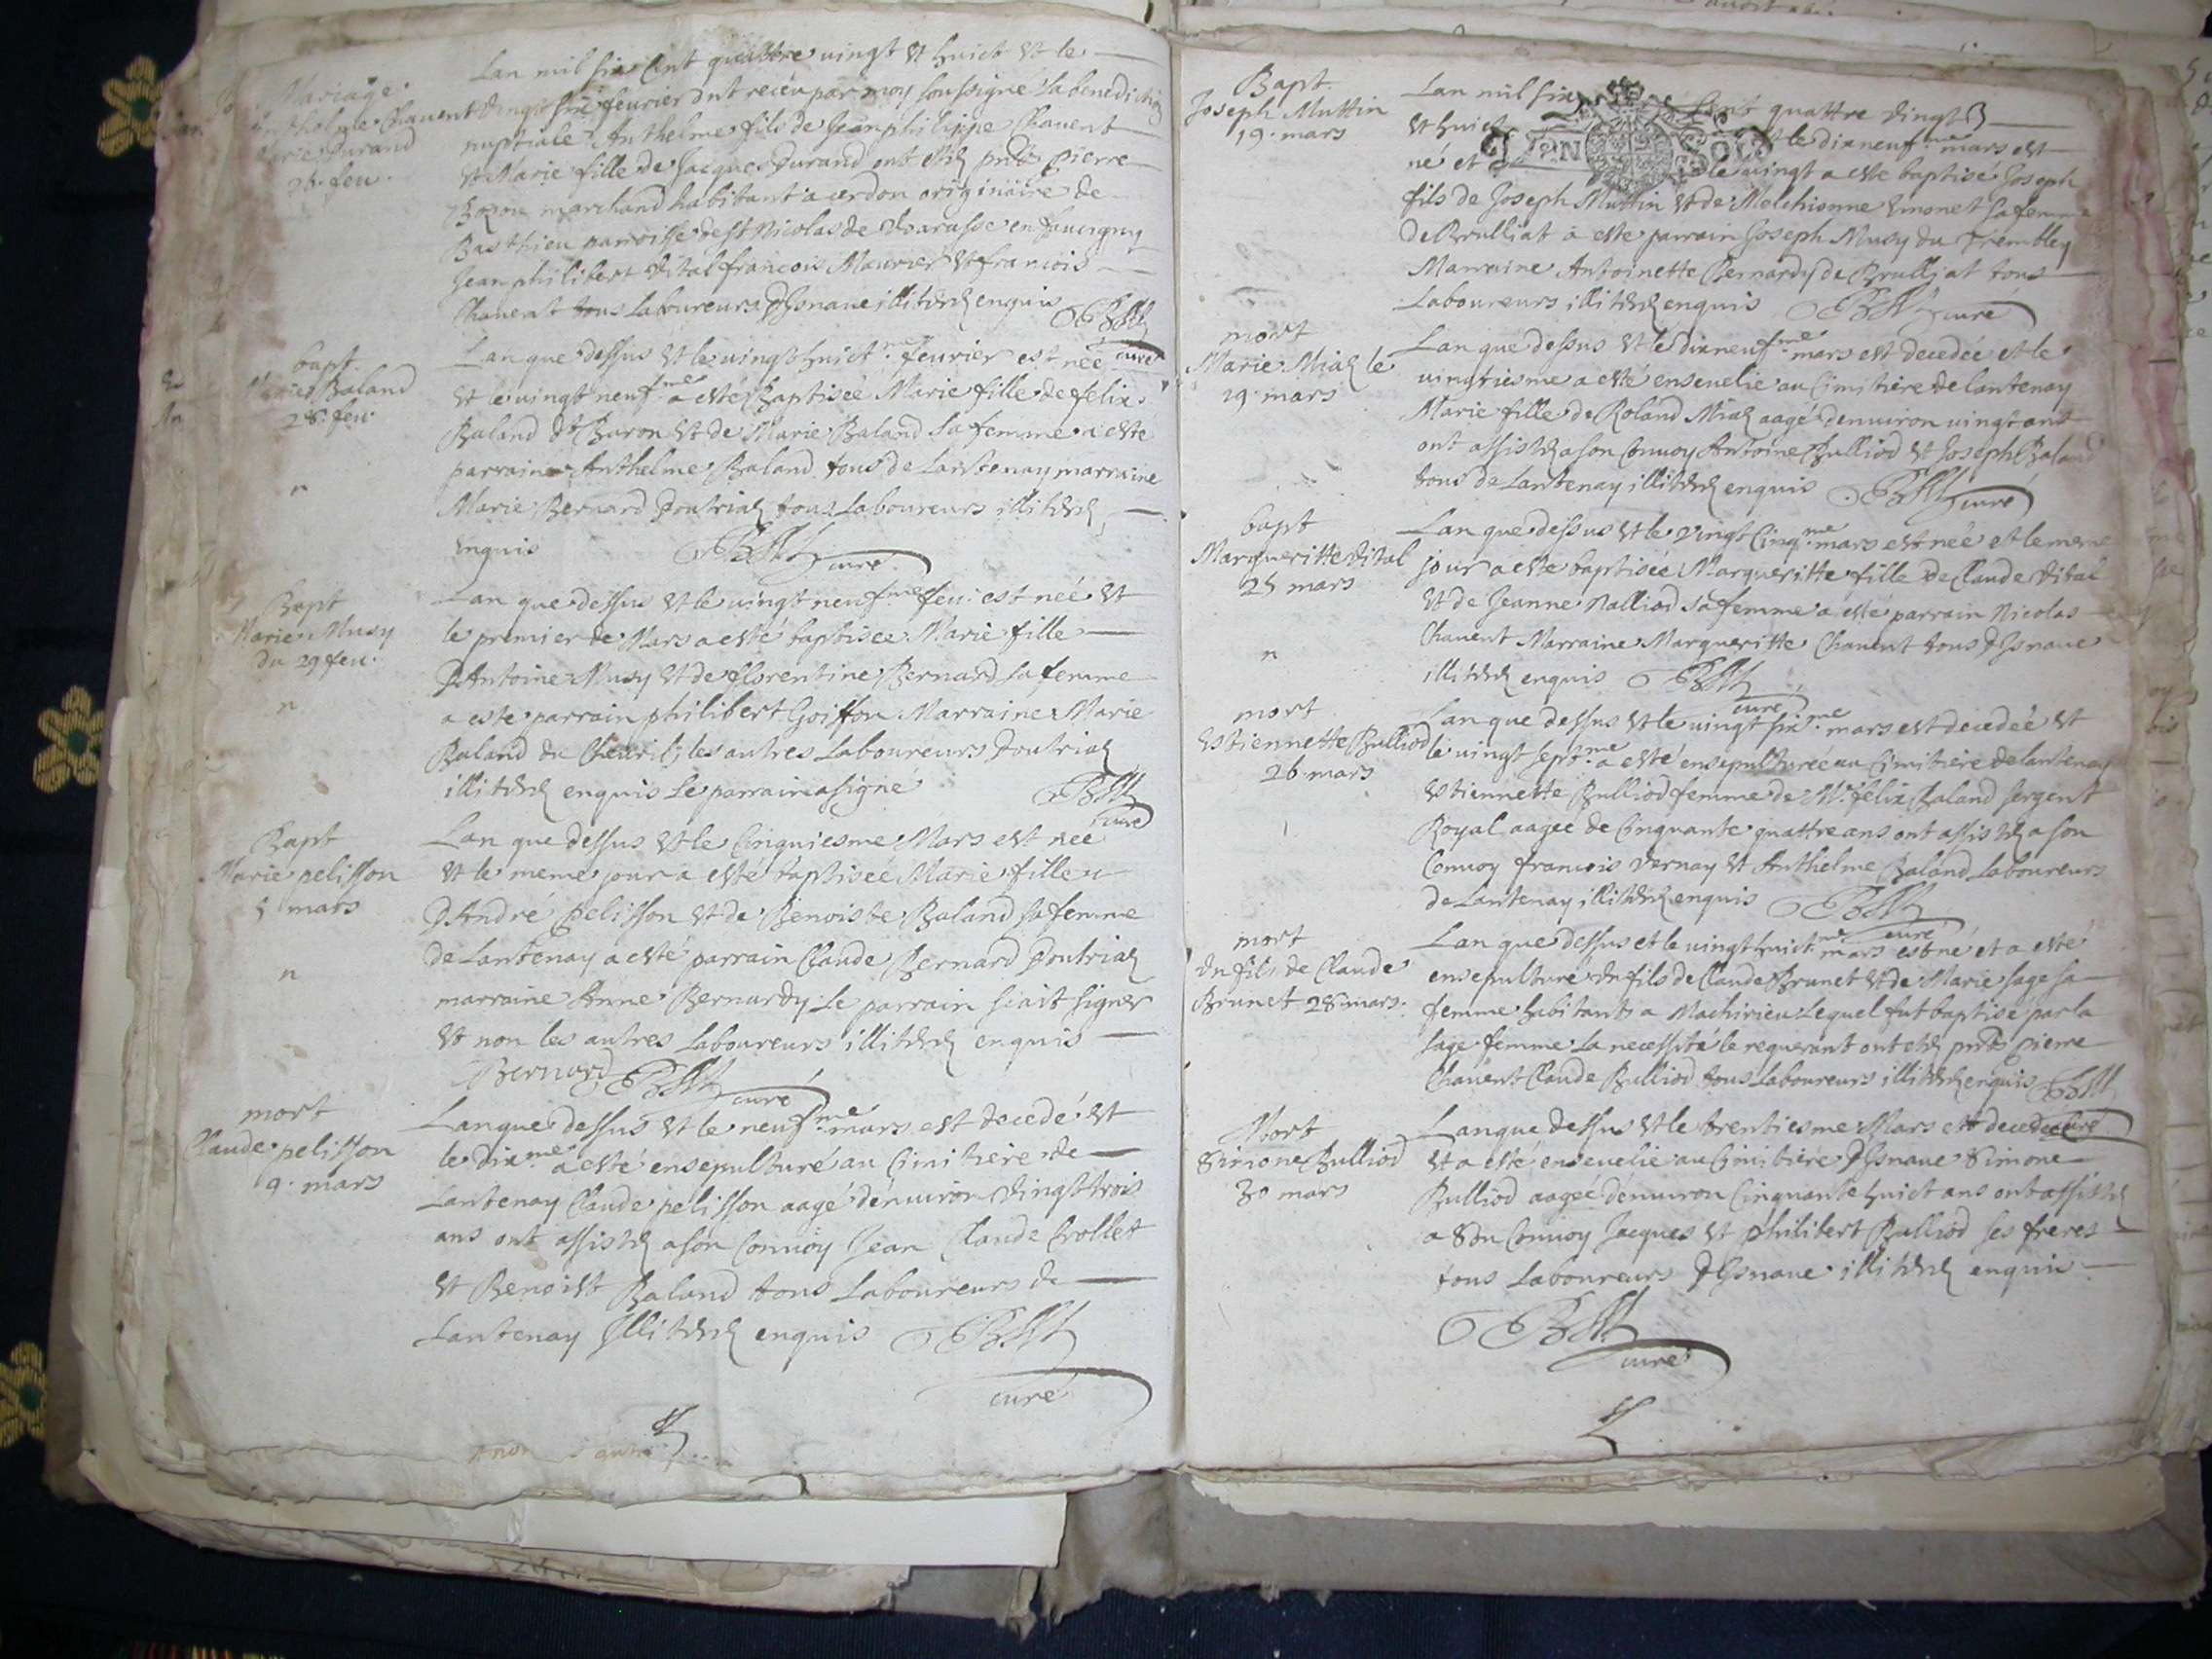 Mariage
Anthelme Chavent
Marie Durand
26. feu.
Lan mil six Cent quattre vingt et huict et le
vingt six fevrier ont receu par moy soussigné la benediction
nuptiale Anthelme fils de Jean philippe Chavent
et Marie fille de Jacques Durand ont estez pnts pierre
Bozon marchand habitant a cerdon originaire de
parroisse de st Nicolas de en faucigny
Jean philibert Vital francois Maurier et francois
Chavent tous Laboureurs Disnave illiterez enquis
curé
bapt.
Marie Baland
28. feu.
n
Lan que dessus et le vingt huict me fevrier est née
et le vingt neuf me a esté Baptisée Marie fille de felix
Baland dt Baron et de Marie Baland sa femme a esté
parrain Anthelme Baland tous de Lantenay marraine
Marie Bernard Doutriaz tous Laboureurs illiterez
enquis
curé
Bapt
Marie Musy
du 29 feu.
n
Lan que dessus et le vingt neuf me feu: est née et
le premier de Mars a esté baptisée Marie fille
D'Antoine Musy et de florentine Bernard sa femme
a esté parrain philibert Goiffon Marraine Marie
Baland du les autres Laboureurs Doutriaz
illiterez enquis Le parrain a signé
curé
Bapt
Marie pelisson
5 mars
n
Lan que dessus et le Cinquiesme Mars est née
et le meme jour a esté baptisée Marie fille
D'André Pelisson et de Benoiste Baland sa femme
de Lantenay a esté parrain Claude Bernard Doutriaz
marraine Anne Bernardy Le parrain sçait signer
et non les autres Laboureurs illiterez enquis
Bernard
curé
mort
Claude pelisson
9. mars
Lan que dessus et le neuf me mars est decedé et
le dix me a esté ensepulturé au Cimitiere de
Lantenay Claude pelisson aagé denviron vingt trois
ans ont assistez a son Convoy Jean Claude Crollet
et Benoist Baland tous Laboureurs de
Lantenay Illiterez enquis
curé
Bapt.
Joseph Muttin
19. mars
Lan mil six Cent quattre vingt
et huict et le dix neuf me mars est
né et le vingt a esté baptisé Joseph
fils de Joseph Muttin et de Melchionne Emonet sa femme
de Brulliat a esté parrain Joseph Musy du Trembley
Marraine Antoinette Bernardy de Brulliat tous
Laboureurs illiterez enquis
curé
mort
Marie Miaz le
19. mars
Lan que dessus et le dix neuf me mars est decedée et le
vingtiesme a esté ensevelie au Cimitiere de lantenay
Marie fille de Roland Miaz aagé denviron vingt ans
ont assistez a son Convoy Antoine Bulliod et Joseph Baland
tous de Lantenay illiterez enquis
curé
bapt
Margueritte Vital
25 mars
n
Lan que dessus et le vingt Cinq me mars est née et le meme
jour a esté baptisée Margueritte fille de Claude Vital
et de Jeanne Nalliod sa femme a esté parrain Nicolas
Chavent Marraine Margueritte Chavent tous Disnave
illiterez enquis
curé
mort
Estiennette Bulliod
26. mars
Lan que dessus et le vingt six me mars est decedée et
le vingt sept me a esté ensepulturée au Cimitiere de lantenay
Estiennette Bulliod femme de Me felix Baland sergent
Royal aagée de Cinquante quattre ans ont assistez a son
Convoy francois Vernay et Anthelme Baland Laboureurs
de Lantenay illiterez enquis
curé
mort
Un fils de Claude
Brunet 28 mars.
Lan que dessus et le vingt huict me mars est né et a esté
ensepulturé Un fils de Claude Brunet et de Marie Sage sa
femme habitants a Machirieu Lequel fut baptisé par la
sage femme La necessité le requerant ont estez pnts pierre
Chavent Claude Bulliod tous Laboureurs illiterez enquis
curé
Mort
Simone Bulliod
30 mars
Lan que dessus et le trentiesme Mars est decedée
et a esté ensevelie au Cimitiere Disnave Simone
Bulliod aageé denviron Cinquante huict ans ont assistez
a Son Convoy Jacques et philibert Bulliod ses freres
tous Laboureurs Disnave illiterez enquis
curé